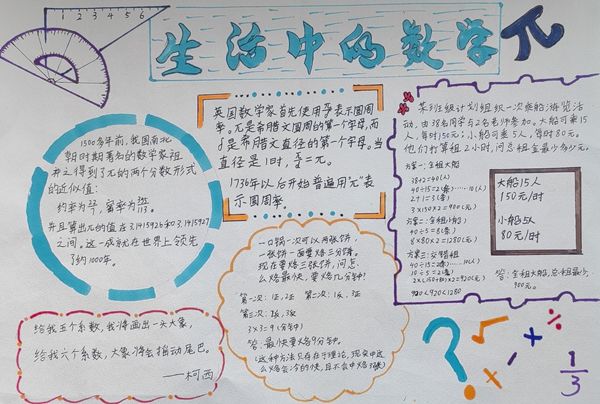 生活中的数学 π
1 2 3 4 5 6
1500多年前,我国南北
朝时期著名的数学家祖
冲之得到了π的两个分数形式
的近似值:
约率为22/7,密率为355/113。
并且算出π的值在3.1415926和3.1415927
之间。这一成就在世界上领先
了约1000年。
英国数学家首先使用π/δ表示圆周
率。π是希腊文圆周的第一个字母,而
δ是希腊文直径的第一个字母。当
直径是1时,π/δ=π。
1736年以后开始普遍用"π"表
示圆周率。
某班级计划组织一次乘船游览活
动,由38名同学与2名老师参加。大船可乘15
人,每时150元;小船可乘5人,每时80元。
他们打算租2小时,问总租金最少多少元。
方案一:全租大船
38+2=40(人)
40÷15=2(条)……10(人)
2+1=3(条)
3×150×2=900(元)
方案二:全租小船
40÷5=8(条)
8×80×2=1280(元)
方案三:交替租
40÷15=2(条)……10(人)
10÷5=2(条)
2×(150+80)×2=920(元)
900<920<1280
大船15人
150元/时
小船5人
80元/时
答:全租大船,总租金最少
900元。
一口锅一次可以烙两张饼,
一张饼一面要烙三分钟。
现在要烙三张饼,问怎
么烙最快,要烙几分钟?
第一次:1正,2正 第二次:1反,3正
第三次:2反,3反
3×3=9(分钟)
答:最快要烙9分钟。
(这种方法只存在于理论,现实中这
么烙会冷的快,且不会中烙3张)
给我五个系数,我将画出一头大象,
给我六个系数,大象将会摇动尾巴。
——柯西
? √ + ÷ × %
1/3